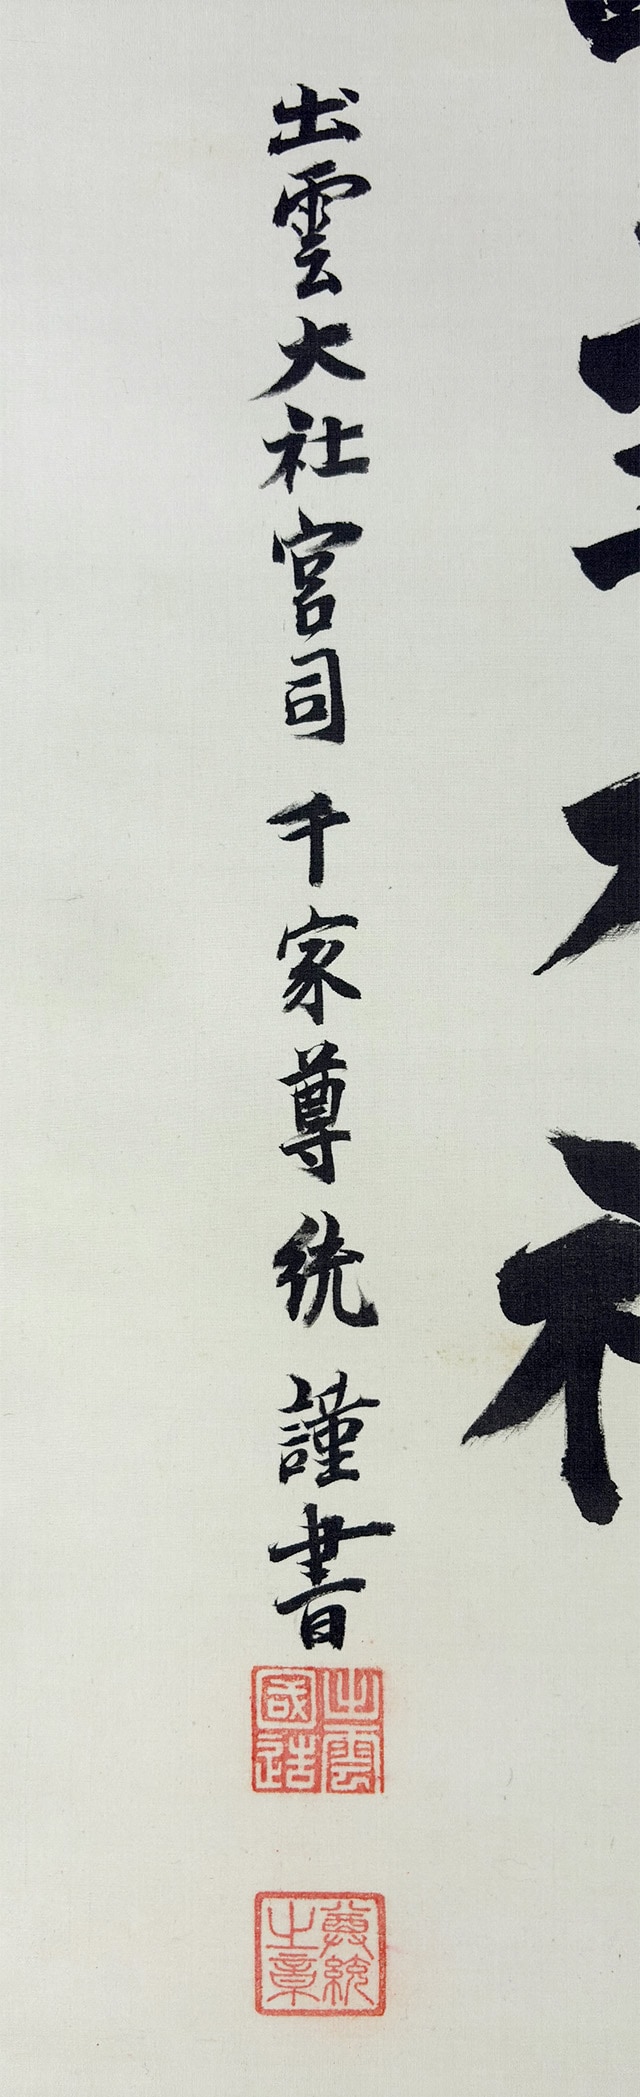 出雲大社宮司 千家尊統 謹書
出雲
國造
尊統
之章